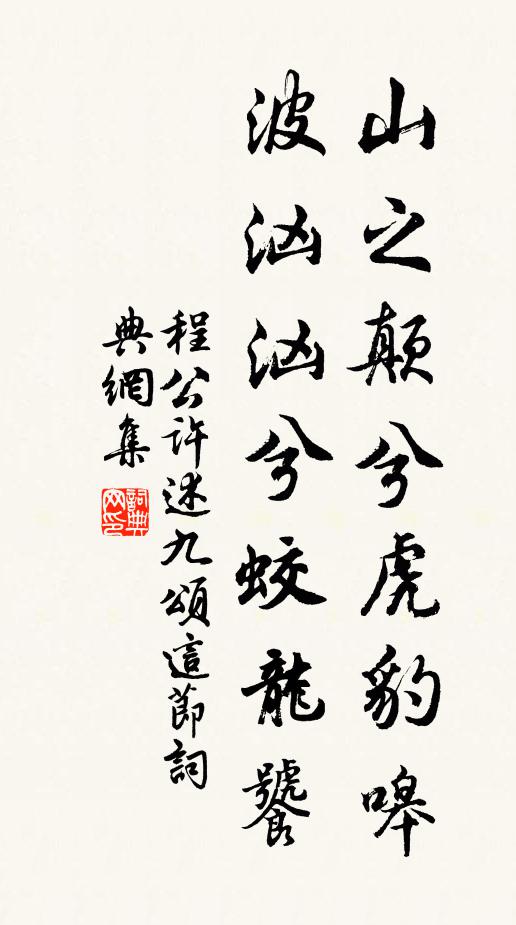 山之顛兮虎豹嗥
波汹汹兮蛟龍饕
程公許述九頌這節詞
典網集
詞典網印